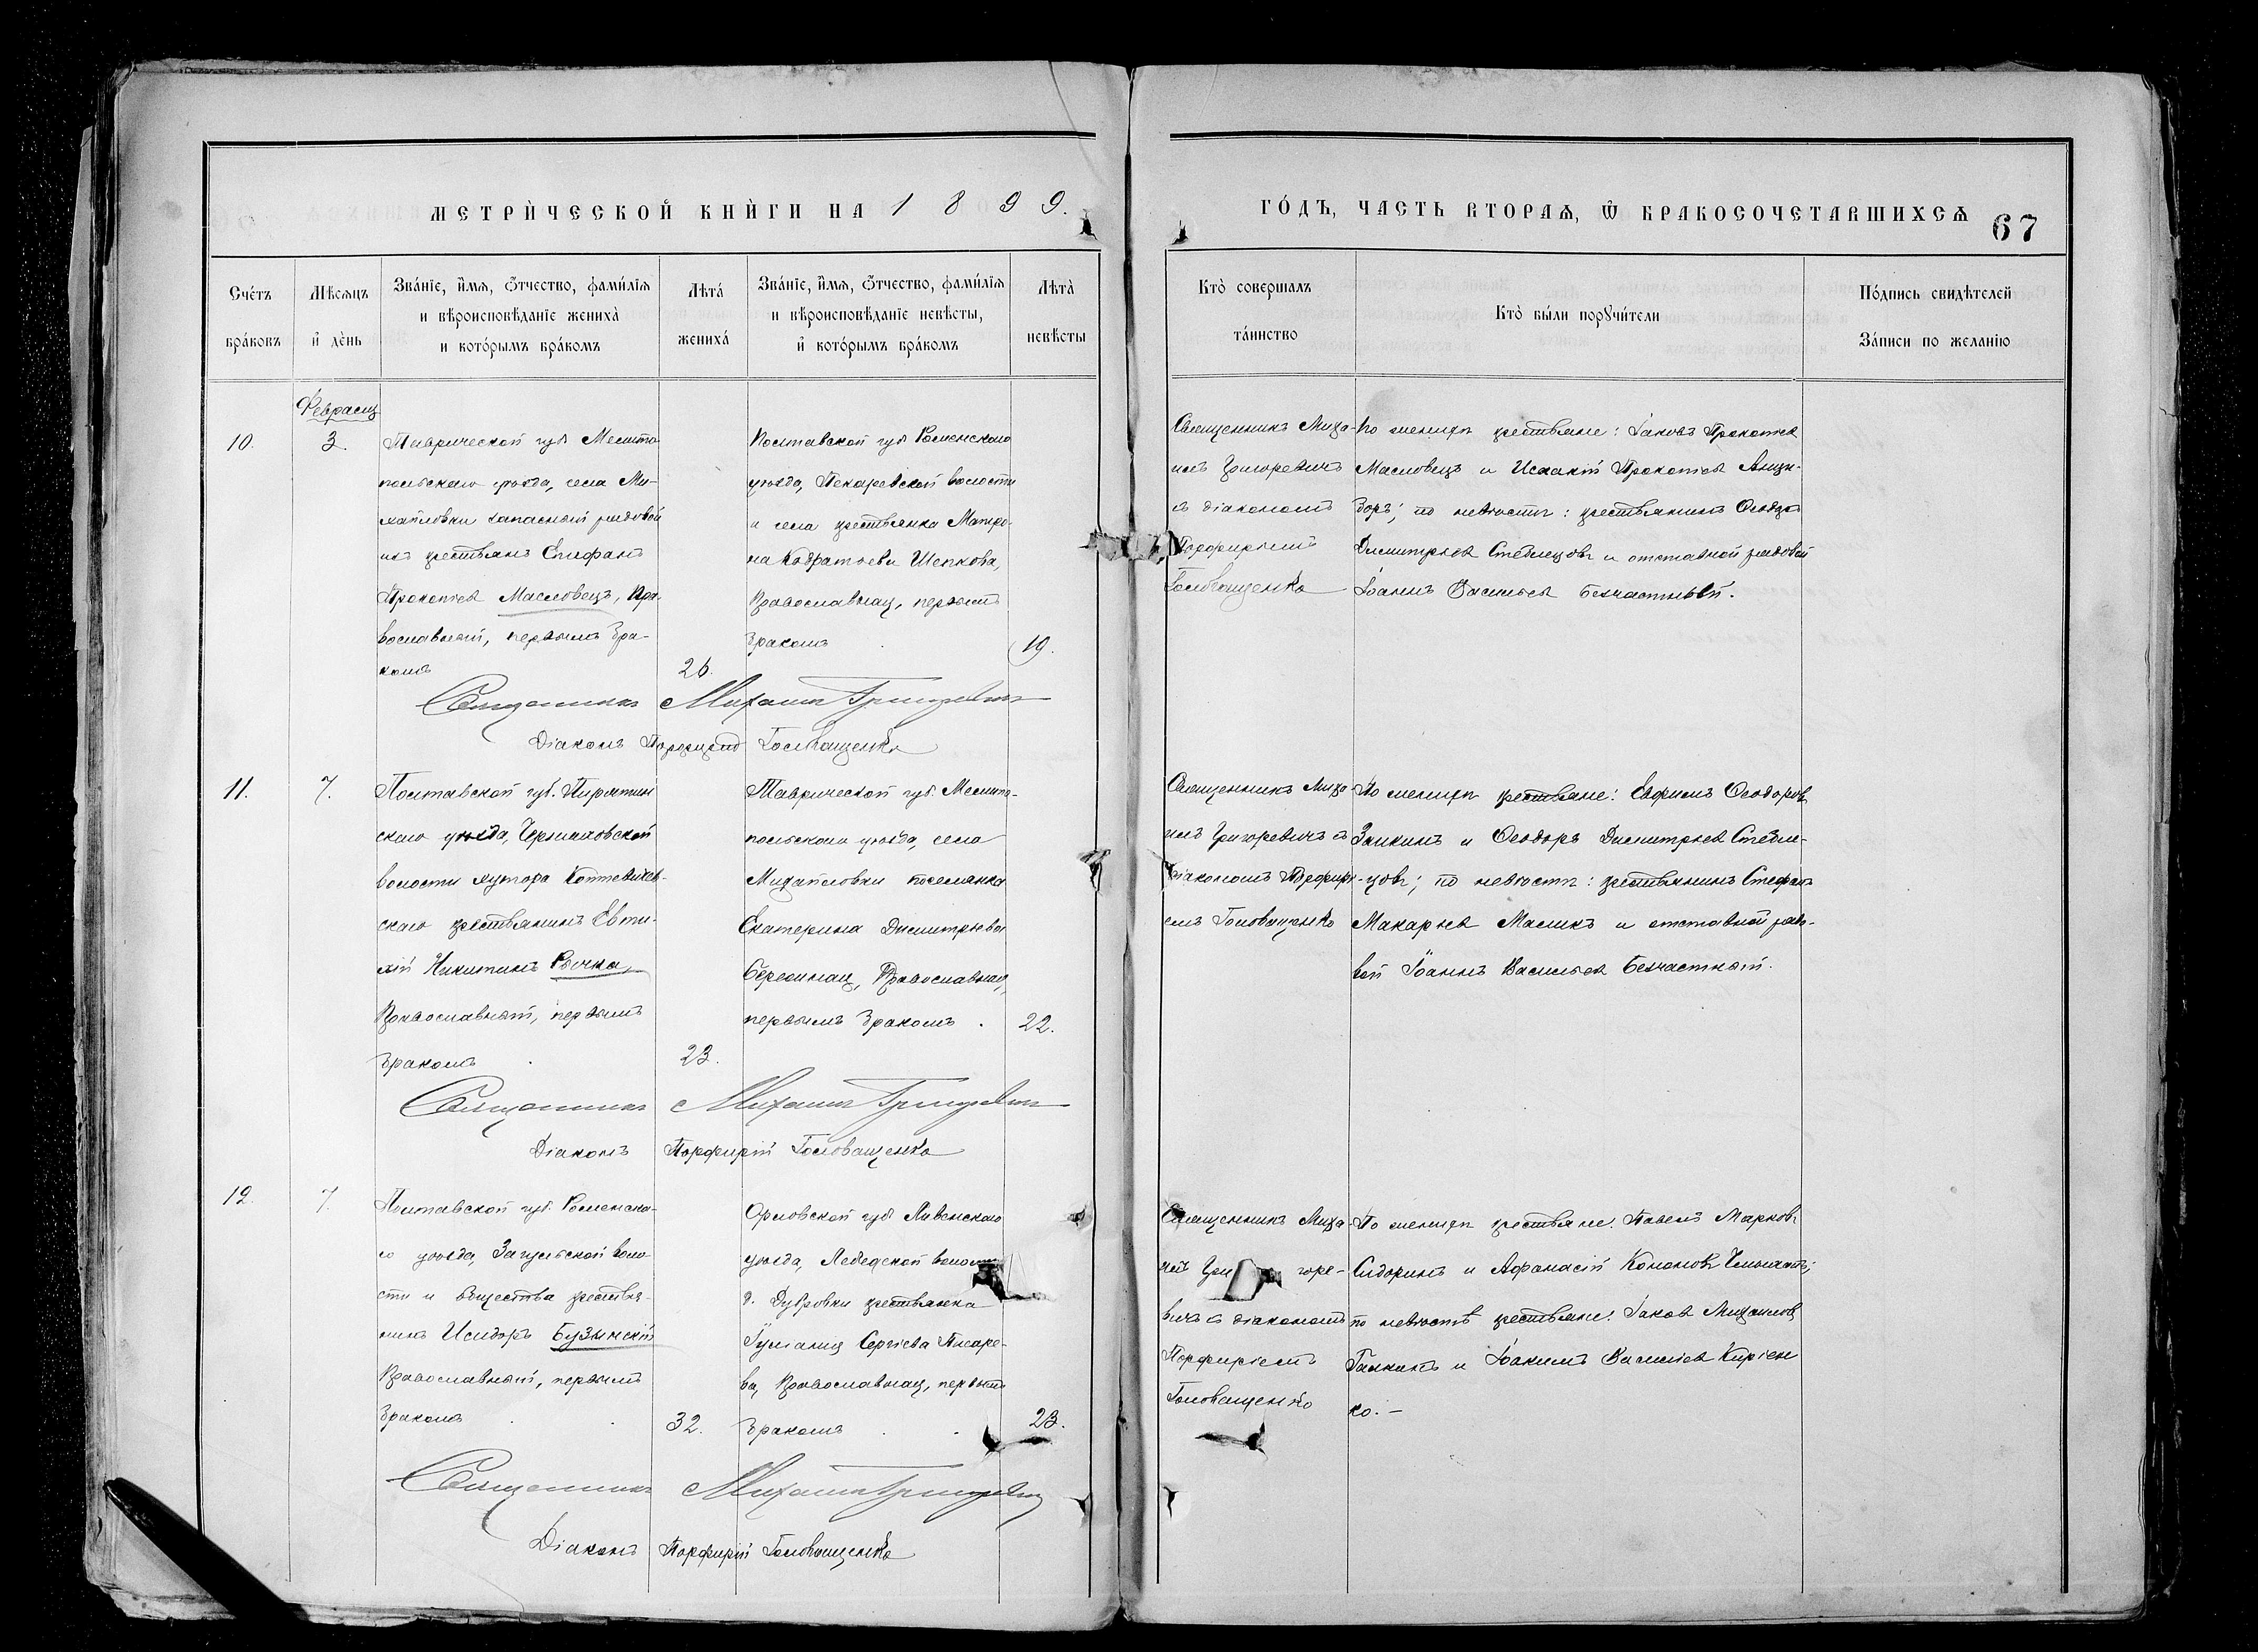 МЕТРИ́ЧЕСКОЙ КНИ́ГИ НА 1899.
ГО́ДЪ, ЧАСТЬ ВТОРАѦ, Ѿ БРАКОСОЧЕТАВШИХСѦ
67
Сче́тъ бра́ковъ
Мѣсяцъ и҆ де́нь
Зва́нїе, и҆́мѧ, ѻ҆́тчество, фами́лїѧ
и вѣроисповѣ́данїе жениха̀
и кото́рымъ бра́комъ
Лѣта̀ жениха́
Зва́нїе, и҆́мѧ, ѻ҆́тчество, фами́лїѧ
и вѣроисповѣ́данїе невѣ́сты,
и҆ кото́рымъ бра́комъ
Лѣта̀ невѣ́сты
Кто̀ совершалъ
та́инство
Кто̀ бы́ли порꙋчи́тели
По́дпись свидѣ́телей
За́писи по желанїю
Февраля
10.
3.
Таврической губ. Мелито-
польскаго уѣзда, села Ми-
хайловки запасный рядовой
изъ крестьянъ Епифанъ
Прокопіевъ Масловецъ, Пра-
вославный, первымъ бра-
комъ
26.
Полтавской губ. Роменскаго
уѣзда, Пекаревской волости
и села крестьянка Матро-
на Кодратьева Шепкова,
Православная, первымъ
бракомъ
19.
Священникъ Миха-
илъ Григоревичъ
съ діакономъ
Порфиріемъ
Головащенко
По женихѣ крестьяне: Іаковъ Прокопіевъ
Масловецъ и Исаакій Прокопіевъ
по невѣстѣ: крестьянинъ Ѳеодоръ
Димитріевъ Стеблецовъ и отставной рядовой
Іоаннъ Васильевъ Безчастный.
Священникъ Михаилъ Григоревичъ
Діаконъ Порфирій Головащенко
11.
7.
Полтавской губ. Пирятин
скаго уѣзда,
волости хутора
скаго крестьянинъ Евти-
хій Никитинъ Рычка,
Православный, первымъ
бракомъ
23.
Таврической губ. Мелито-
польскаго уѣзда, села
Михайловки поселянка
Екатерина Димитріева
Православная,
первымъ бракомъ
22.
Священникъ Миха-
илъ Григоревичъ съ
діакономъ Порфирі-
емъ Головащенко
По женихѣ крестьяне: Евфимъ Ѳеодоровъ
Заикинъ и Ѳеодоръ Димитріевъ Стебле-
цовъ; по невѣстѣ: крестьянинъ Стефанъ
Макарьевъ Маликъ и отставной рядо-
вой Іоаннъ Васильевъ Безчастный.
Священникъ Михаилъ Григоревичъ
Діаконъ Порфирій Головащенко
12.
7.
Полтавской губ. Роменска-
го уѣзда, воло-
сти и общества крестья-
нинъ Исидоръ Бузынскій
Православный, первымъ
бракомъ
32.
Орловской губ. Ливенскаго
уѣзда, волости
д. Дубровки крестьянка
Іуліанія Сергіева Писаре-
ва, Православная, первымъ
бракомъ
23.
Священникъ Миха-
илъ Гри горе-
вичъ съ діакономъ
Порфиріемъ
Головащенко
По женихѣ крестьяне: Павелъ Марковъ
Сидоринъ и Афанасій Кононовъ
по невѣстѣ крестьяне: Іаковъ Михайловъ
Галкинъ и Іоакимъ Васильевъ Киріен
ко. –
Священникъ Михаилъ Григоревичъ
Діаконъ Порфирій Головащенко